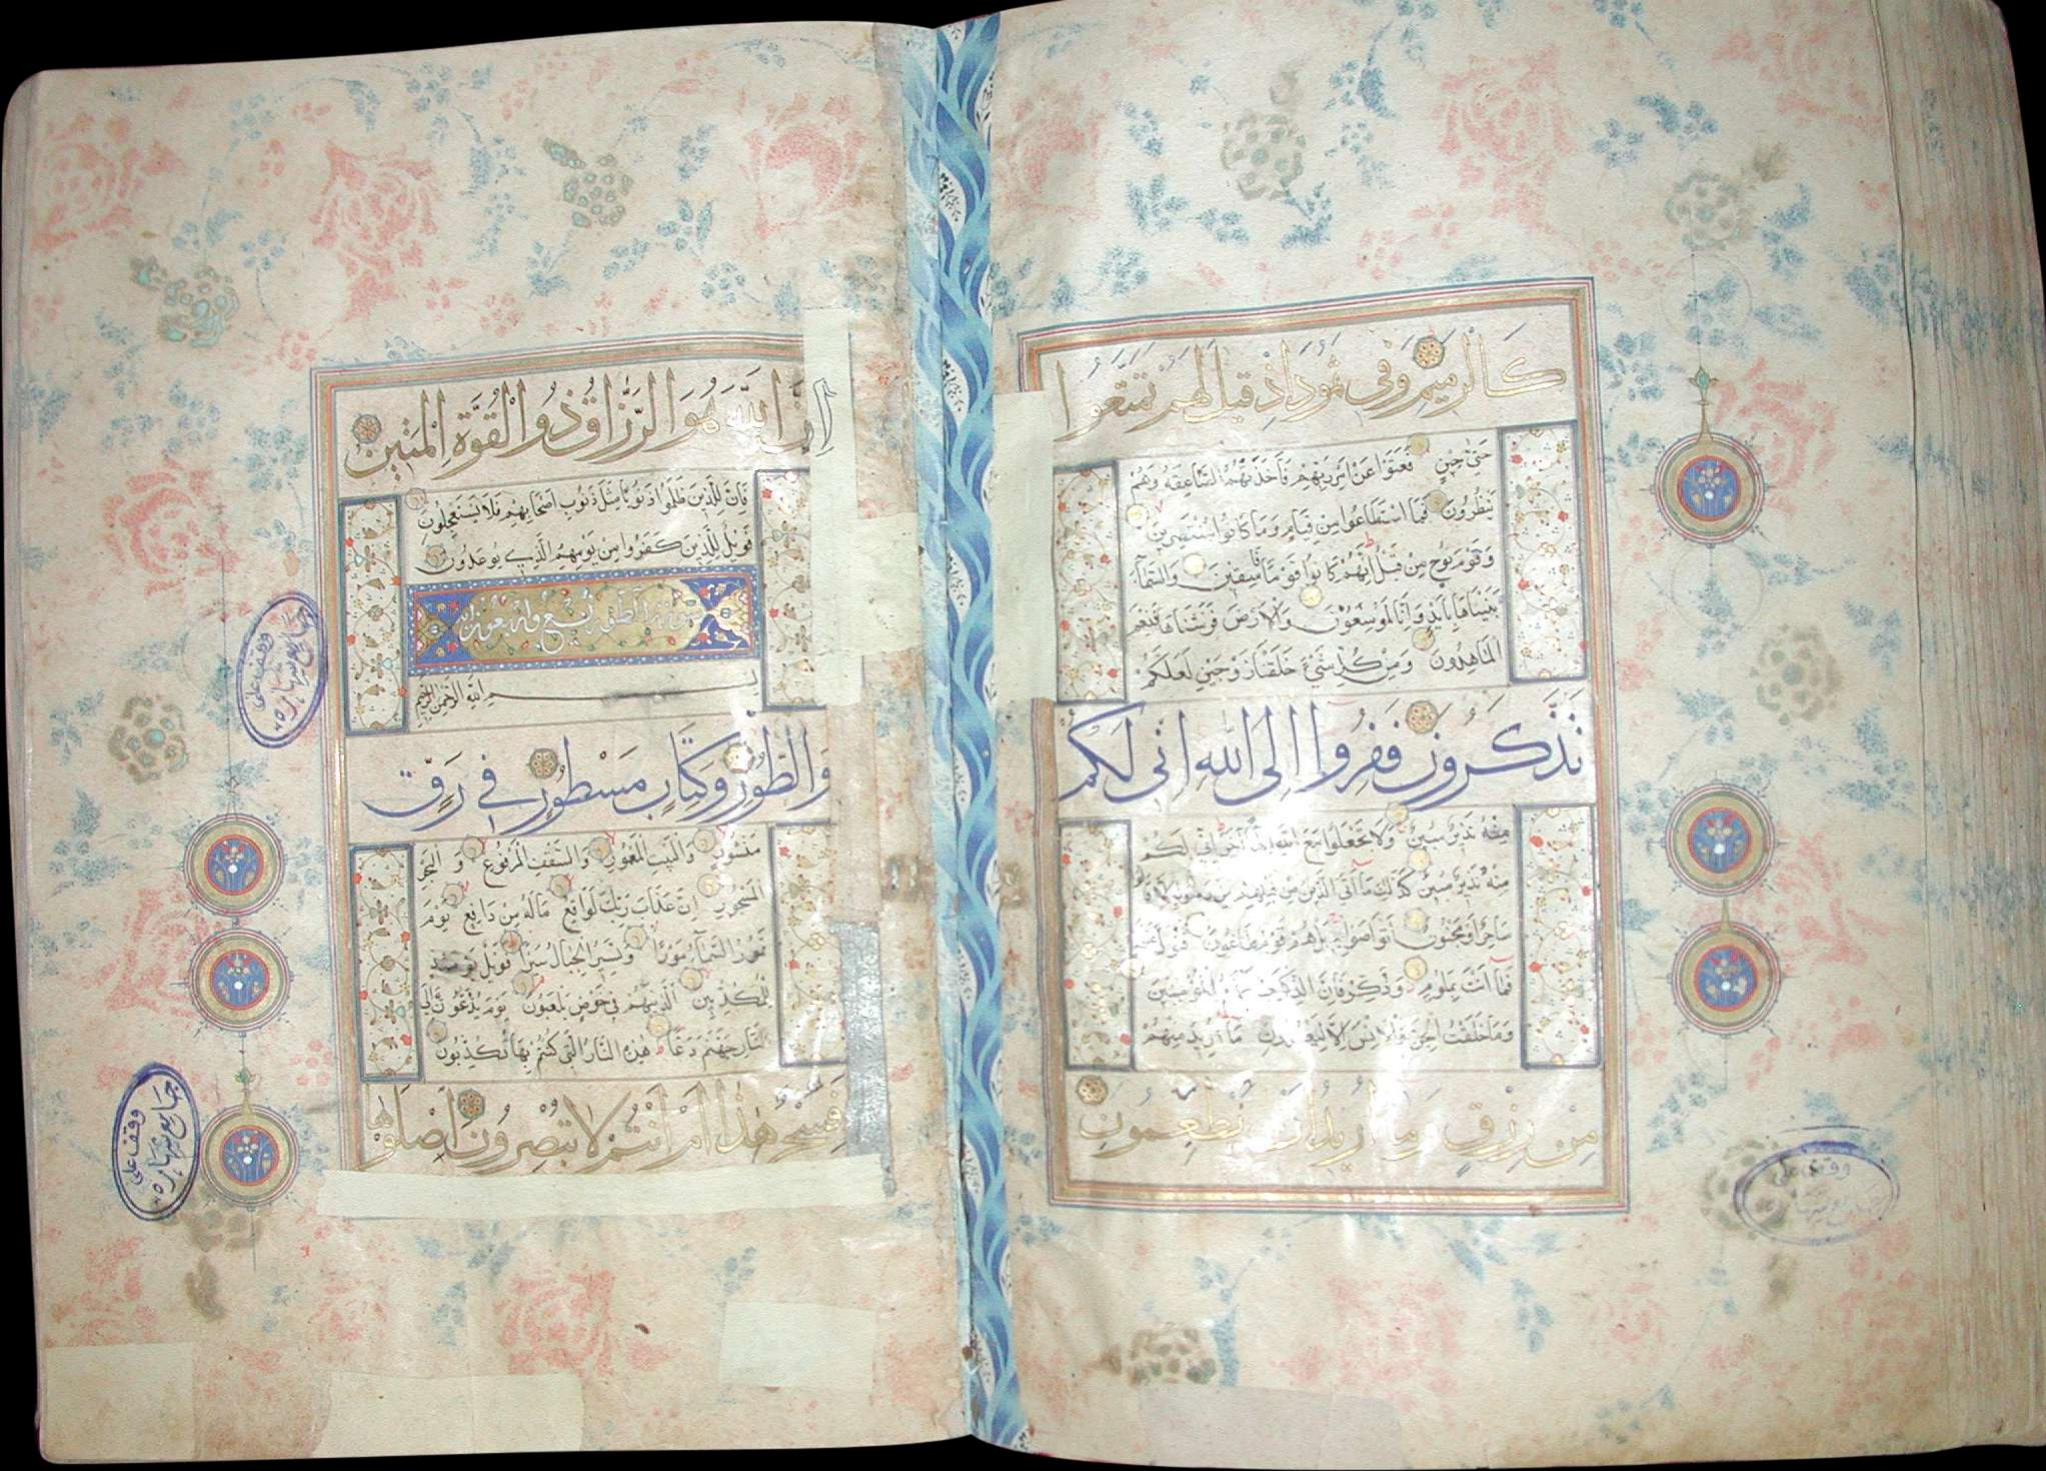 كالرميم وفي ثمود اذ قيل لهم تمتعوا
حتى حين فعتوا عن امر ربهم فاخذتهم الصاعقة وهم
ينظرون فما استطاعوا من قيام وما كانوا منتصرين
وقوم نوح من قبل انهم كانوا قوما فاسقين والسماء
بنيناها بايد وانا لموسعون والارض فرشناها فنعم
الماهدون ومن كل شيء خلقنا زوجين لعلكم
تذكرون ففروا الى الله اني لكم
منه نذير مبين ولا تجعلوا مع الله الها آخر اني لكم
منه نذير مبين كذلك ما اتى الذين من قبلهم من رسول الا قا
ساحر او مجنون اتواصوا به بل هم قوم طاغون فتول عنهم
فما انت بملوم وذكر فان الذكرى تنفع المؤمنين
وما خلقت الجن والانس الا ليعبدون ما اريد منهم
من رزق وما اريد ان يطعمون
وقف على
ان الله هو الرزاق ذو القوة المتين
فان للذين ظلموا ذنوبا مثل ذنوب اصحابهم فلا يستعجلون
فويل للذين كفروا من يومهم الذي يوعدون
سورة الطور تسع واربعون اية
بسم الله الرحمن الرحيم
والطور وكتاب مسطور في رق
منشور والبيت المعمور والسقف المرفوع والبحر
المسجور ان عذاب ربك لواقع ماله من دافع يوم
تمور السماء مورا وتسير الجبال سيرا فويل يومئذ
للمكذبين الذين هم في خوض يلعبون يوم يدعون الى
نار جهنم دعا هذه النار التي كنتم بها تكذبون
افسحر هذا ام انتم لا تبصرون اصلوها
وقف على
جامع شهاره
وقف على
جامع شهاره